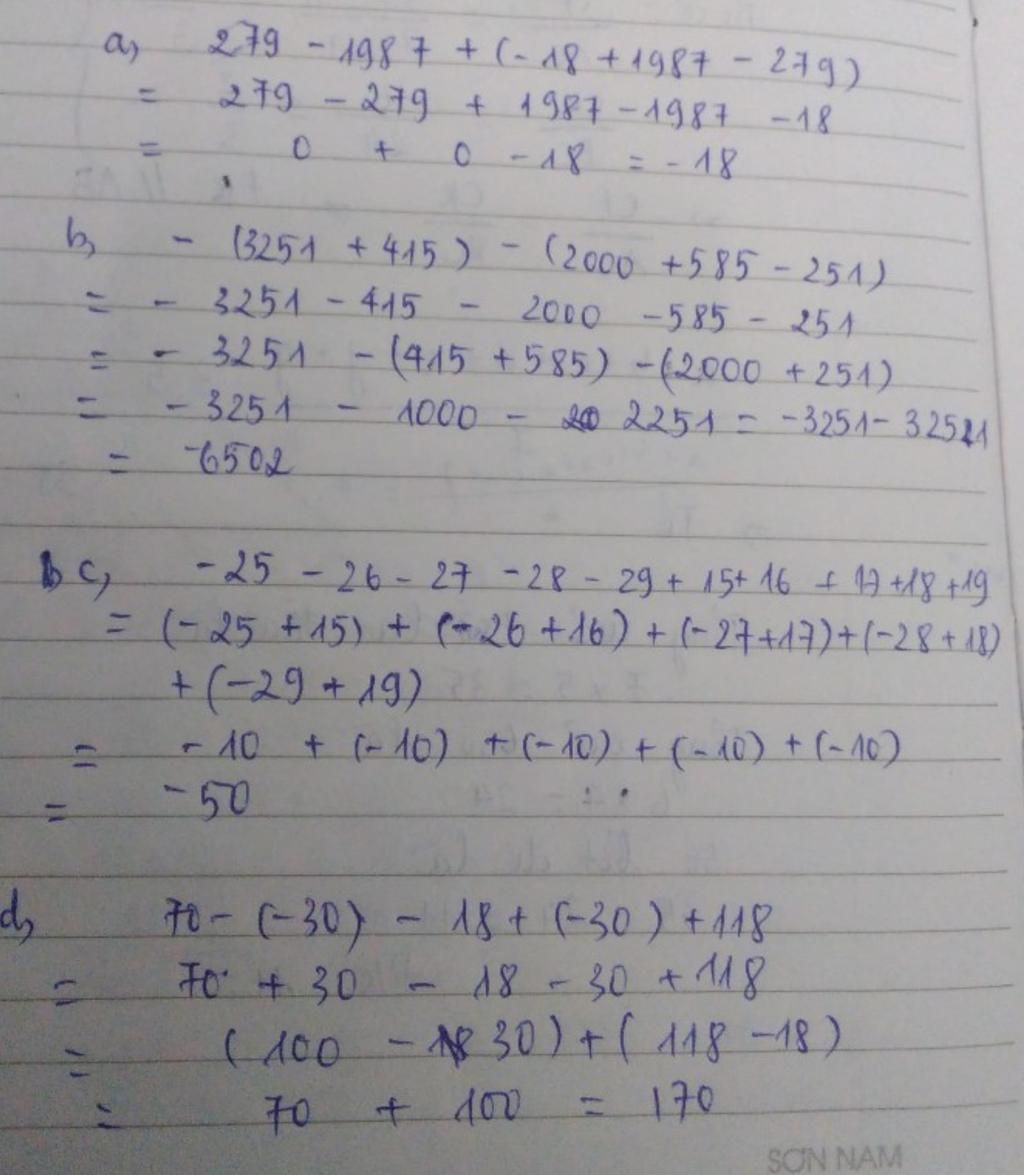 a, 279 - 1987 + (-18 + 1987 - 279)
= 279 - 279 + 1987 - 1987 - 18
= 0 + 0 - 18 = -18
b, - (3251 + 415) - (2000 + 585 - 251)
= - 3251 - 415 - 2000 - 585 - 251
= - 3251 - (415 + 585) - (2000 + 251)
= - 3251 - 1000 - 2251 = -3251 - 3251
= -6502
c, -25 - 26 - 27 - 28 - 29 + 15 + 16 + 17 + 18 + 19
= (-25 + 15) + (-26 + 16) + (-27 + 17) + (-28 + 18)
+ (-29 + 19)
= -10 + (-10) + (-10) + (-10) + (-10)
= -50
d, 70 - (-30) - 18 + (-30) + 118
= 70 + 30 - 18 - 30 + 118
= (100 - 30) + (118 - 18)
= 70 + 100 = 170
SƠN NAM